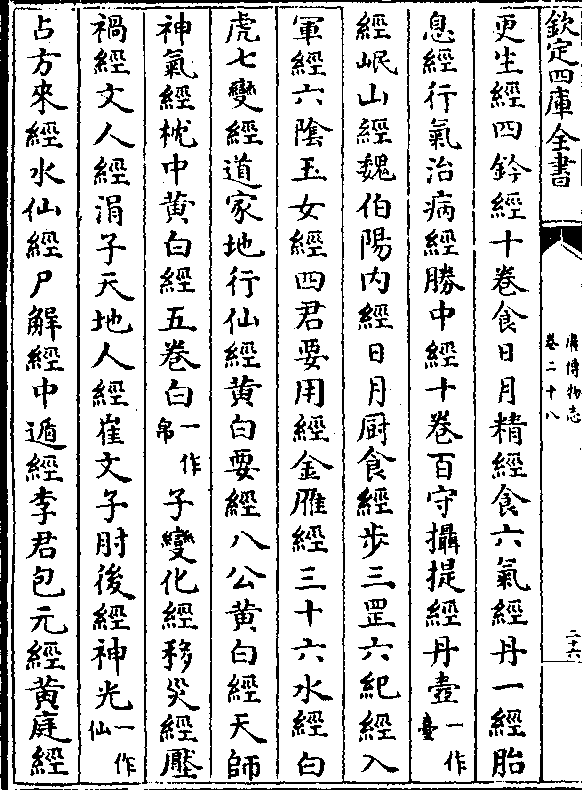 欽定四庫全書
廣博物志
卷二十八
二十六
更生經四鈐經十卷食日月精經食六氣經丹一經胎
息經行氣治病經勝中經十卷百守攝提經丹壺一作臺
經岷山經魏伯陽内經日月厨食經步三罡六紀經入
軍經六陰玉女經四君要用經金雁經三十六水經白
虎七變經道家地行仙經黄白要經八公黄白經天師
神氣經枕中黄白經五卷白一作帛子變化經移災經壓
禍經文人經涓子天地人經崔文子肘後經神光一作仙
占方來經水仙經尸解經中遁經李君包元經黄庭經